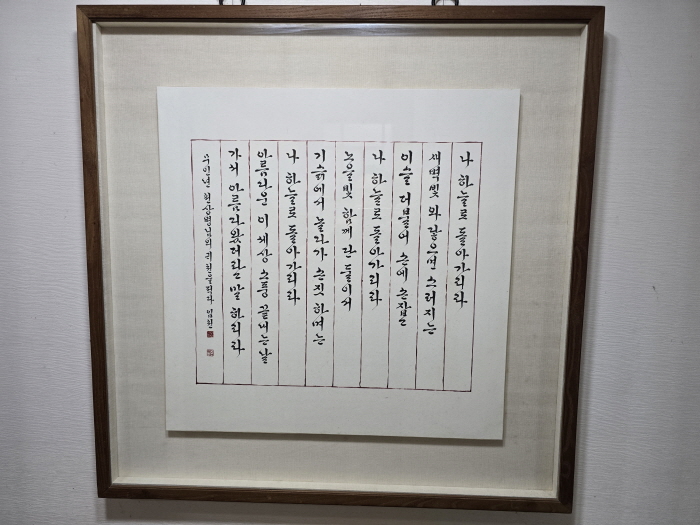 나 하늘로 돌아가리라
새벽빛 와 닿으면 스러지는
이슬 더불어 손에 손잡고
나 하늘로 돌아가리라
노을빛 함께 단 둘이서
기슭에서 놀다가 손짓하며는
나 하늘로 돌아가리라
아름다운 이 세상 소풍 끝내는 날
가서 아름다웠더라고 말하리라
천상병님의